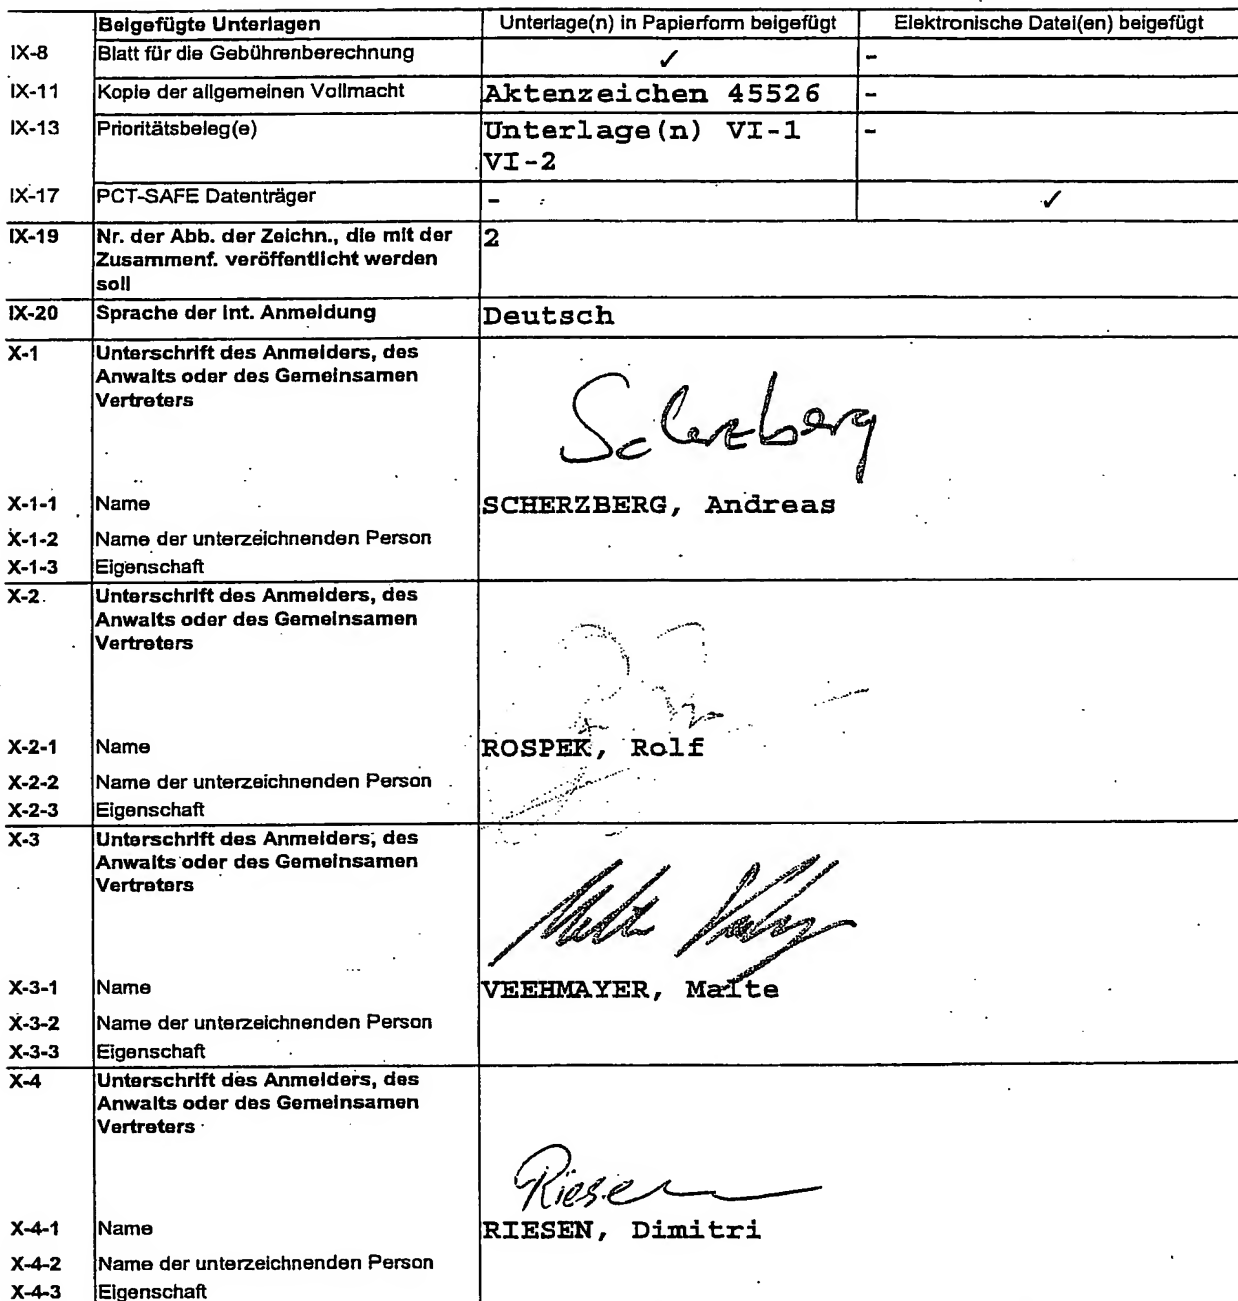 Beigefügte Unterlagen Unterlage(n) in Papierform beigefügt Elektronische Datei(en) beigefügt
IX-8 Blatt für die Gebührenberechnung ✓ -
IX-11 Kopie der allgemeinen Vollmacht Aktenzeichen 45526 -
IX-13 Prioritätsbeleg(e) Unterlage(n) VI-1 -
VI-2
IX-17 PCT-SAFE Datenträger - ✓
IX-19 Nr. der Abb. der Zeichn., die mit der 2
Zusammenf. veröffentlicht werden
soll
IX-20 Sprache der int. Anmeldung Deutsch
X-1 Unterschrift des Anmelders, des
Anwalts oder des Gemeinsamen
Vertreters
Scherzberg
X-1-1 Name SCHERZBERG, Andreas
X-1-2 Name der unterzeichnenden Person
X-1-3 Eigenschaft
X-2 Unterschrift des Anmelders, des
Anwalts oder des Gemeinsamen
Vertreters
X-2-1 Name ROSPEK, Rolf
X-2-2 Name der unterzeichnenden Person
X-2-3 Eigenschaft
X-3 Unterschrift des Anmelders, des
Anwalts oder des Gemeinsamen
Vertreters
X-3-1 Name VEEHMAYER, Malte
X-3-2 Name der unterzeichnenden Person
X-3-3 Eigenschaft
X-4 Unterschrift des Anmelders, des
Anwalts oder des Gemeinsamen
Vertreters
Riesen
X-4-1 Name RIESEN, Dimitri
X-4-2 Name der unterzeichnenden Person
X-4-3 Eigenschaft